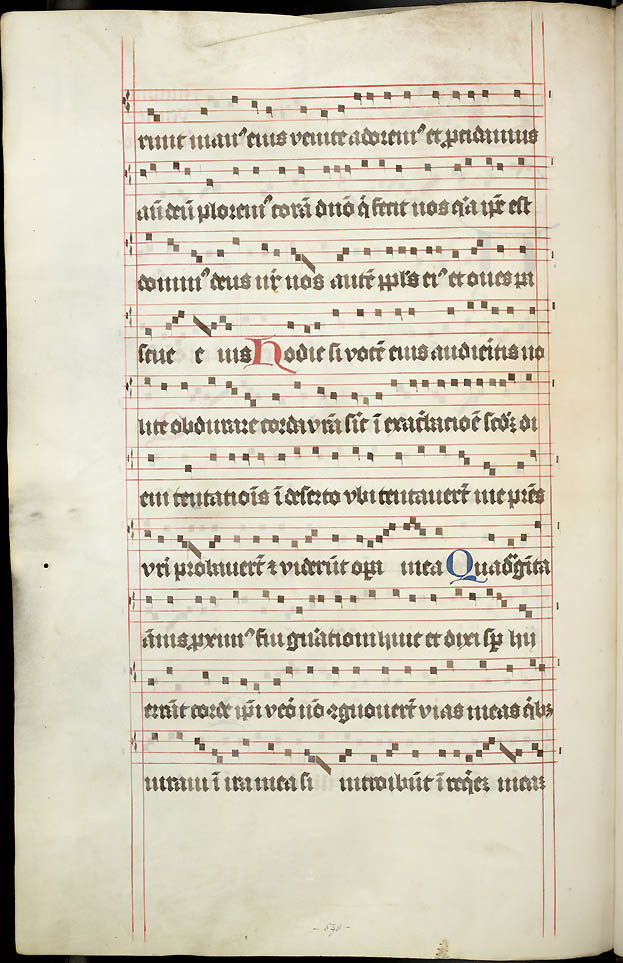 runt manꝰ eius venite adoremꝰ et ꝓcidamus
añ deū ploremꝰ corā dn̄o q̇ fecit nos q̇a ip̄e est
dominꝰ deus nr̄ nos autē ppl̄s eiꝰ et oues pa
scue e ius Hodie si vocē eius audieritis no
lite obdurare corda vr̄a sic̄ ī exac̄batioē scd̄ꝫ di
em tentatiois ī deserto vbi tentauert̄ me pr̄es
vr̄i probauert̄ ⁊ viderūt opa mea Quadᵃgīta
ānis ꝓximꝰ fui gn̄ationi huic et dixi sp̄ hij
errāt corde ip̄i veō nō ꝯgnouert̄ vias meas q̇bꝫ
iuraui ī ira mea si introibūt ī req̇eꝫ meaꝫ